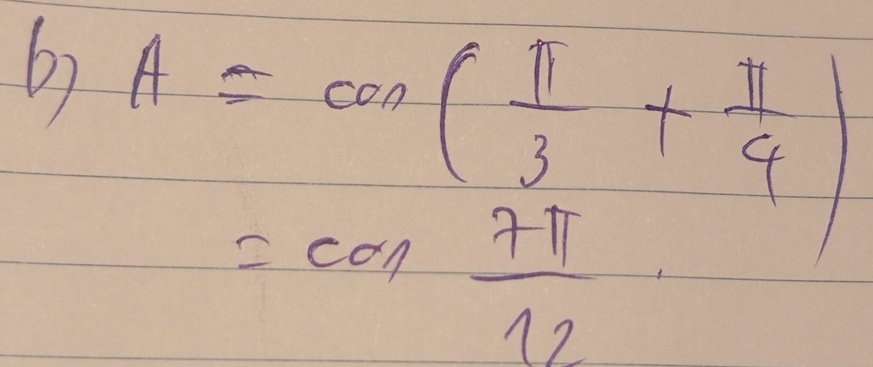 b) A = cos ( π/3 + π/4 )
= cos 7π/12 .